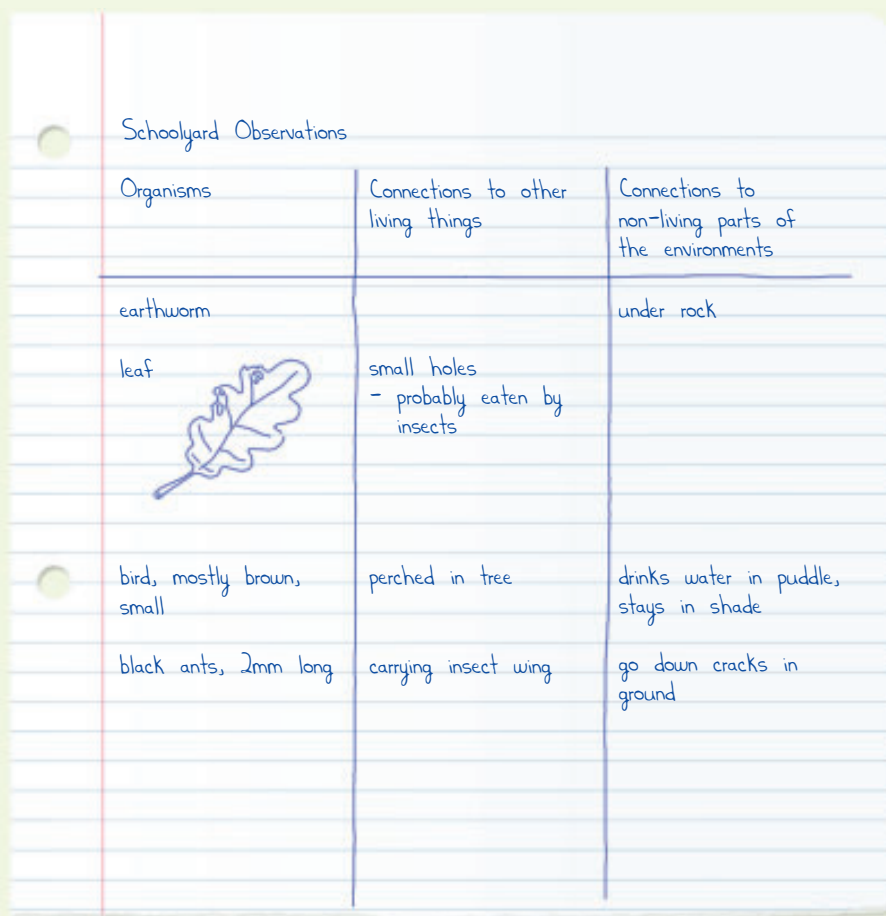 Schoolyard Observations
Organisms
Connections to other
living things
Connections to
non-living parts of
the environments
earthworm
under rock
leaf
small holes
- probably eaten by
insects
bird, mostly brown,
small
perched in tree
drinks water in puddle,
stays in shade
black ants, 2mm long
carrying insect wing
go down cracks in
ground